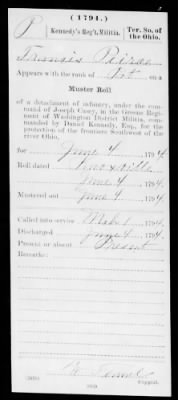 (1794.)
P | Kennedy's Reg't, Militia. | Ter. So. of the Ohio.
Francis Pierce
Appears with the rank of Pvt. on a
Muster Roll
of a detachment of infantry, under the com-
mand of Joseph Casey, in the Greene Regi-
ment of Washington District Militia, com-
manded by Daniel Kennedy, Esq., for the
protection of the frontiers Southwest of the
river Ohio,
for June 4, 1794.
Roll dated Knoxville
June 4, 1794.
Mustered out June 4, 1794.
Called into service Mch 1, 1794.
Discharged June 4, 1794.
Present or absent Present
Remarks:
Copyist.